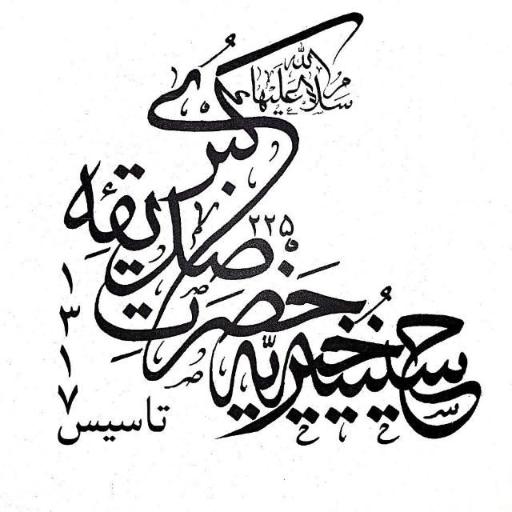 حسینیه خیریه
حضرت
صدیقه
کبری
سلام الله علیها
۲۲۵
تاسیس
۱۳۱۷